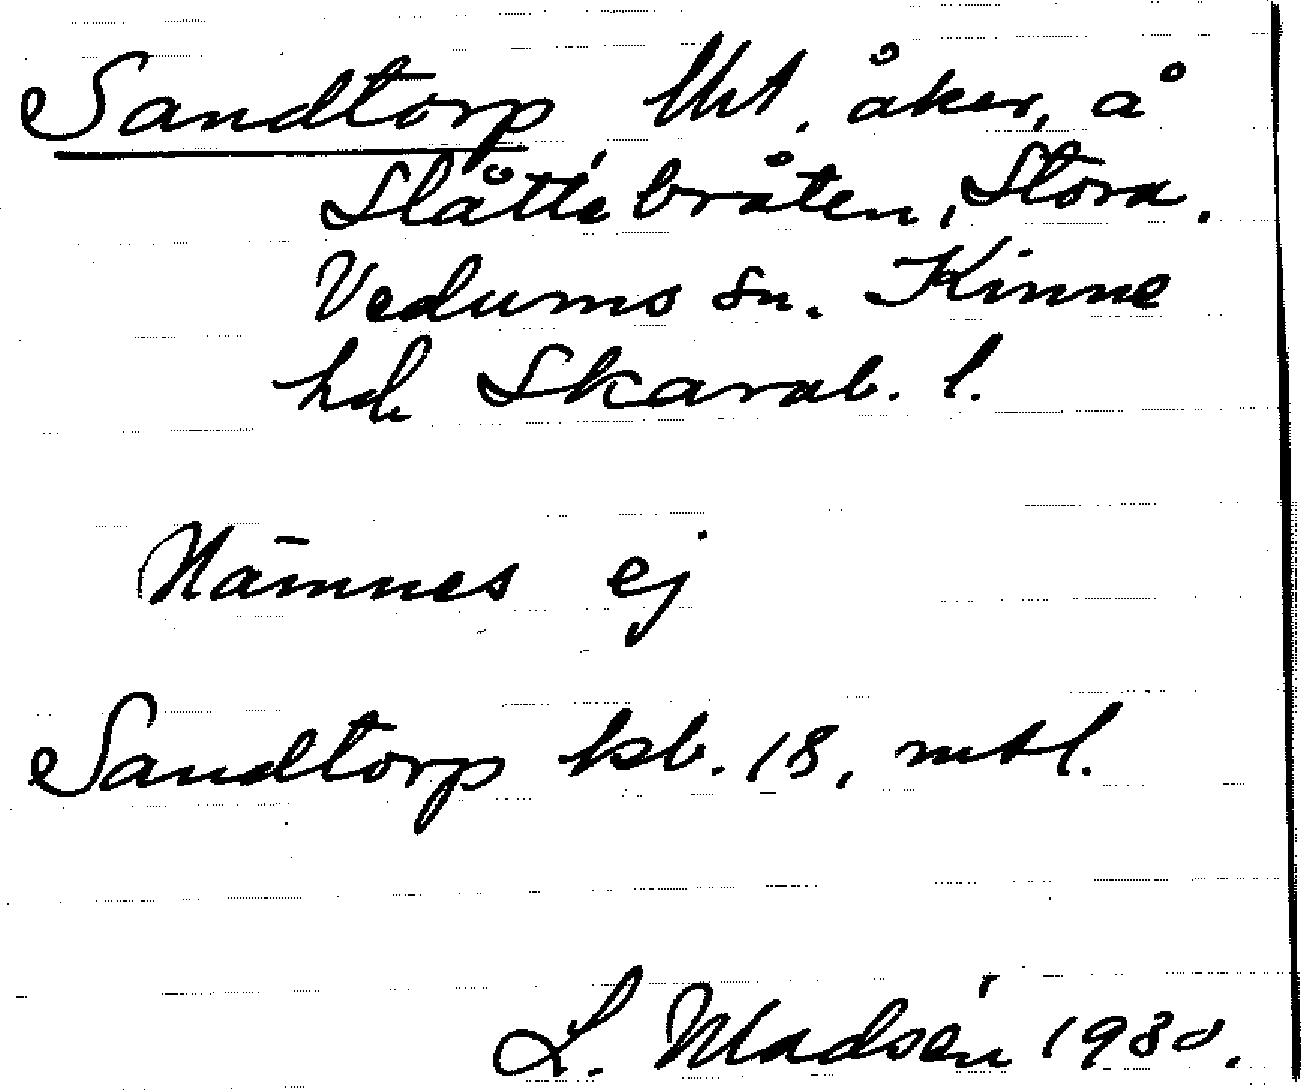 Sandtorp lht. åker, å
Slåttebråten, Stora.
Vedums sn. Kinne
hd Skarab. l.
Nämnes ej
Sandtorp kb. 18, mtl.
L. Madsén 1930.